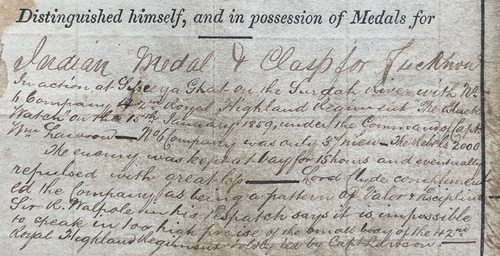 Distinguished himself, and in possession of Medals for
Indian Medal & Clasp for Lucknow
In action at Sisseya Ghat on the Surdah River with No
6 Company 42nd Royal Highland Regiment The Black
Watch on the 15th January 1859, under the Command of Capt
Wm Lawson — No 6 Company was only 37 men — The Rebels 2000
The enemy was kept at bay for 15 hours and eventually
repulsed with great loss — Lord Clyde compliment
ed the Company as being a pattern of Valor & discipline
Sir R. Walpole in his despatch says it is impossible
to speak in too high praise of the small body of the 42nd
Royal Highland Regiment led by Capt Lawson